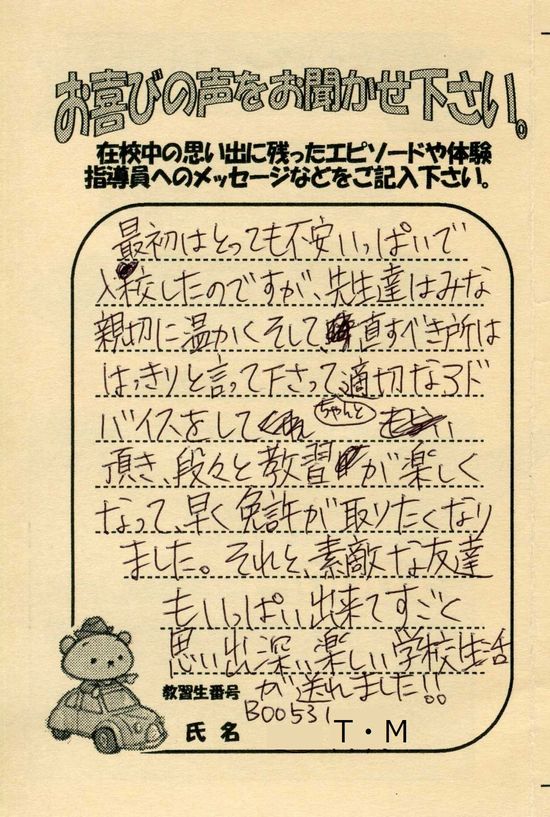 お喜びの声をお聞かせ下さい。
在校中の思い出に残ったエピソードや体験
指導員へのメッセージなどをご記入下さい。
最初はとっても不安いっぱいで
入校したのですが、先生達はみな
親切に温かくそして、直すべき所は
はっきりと言って下さって適切なアド
バイスをして ちゃんと
頂き、段々と教習が楽しく
なって、早く免許が取りたくなり
ました。それと、素敵な友達
もいっぱい出来てすごく
思い出深い、楽しい学校生活
が送れました!!
教習生番号 B00531
氏名 T・M